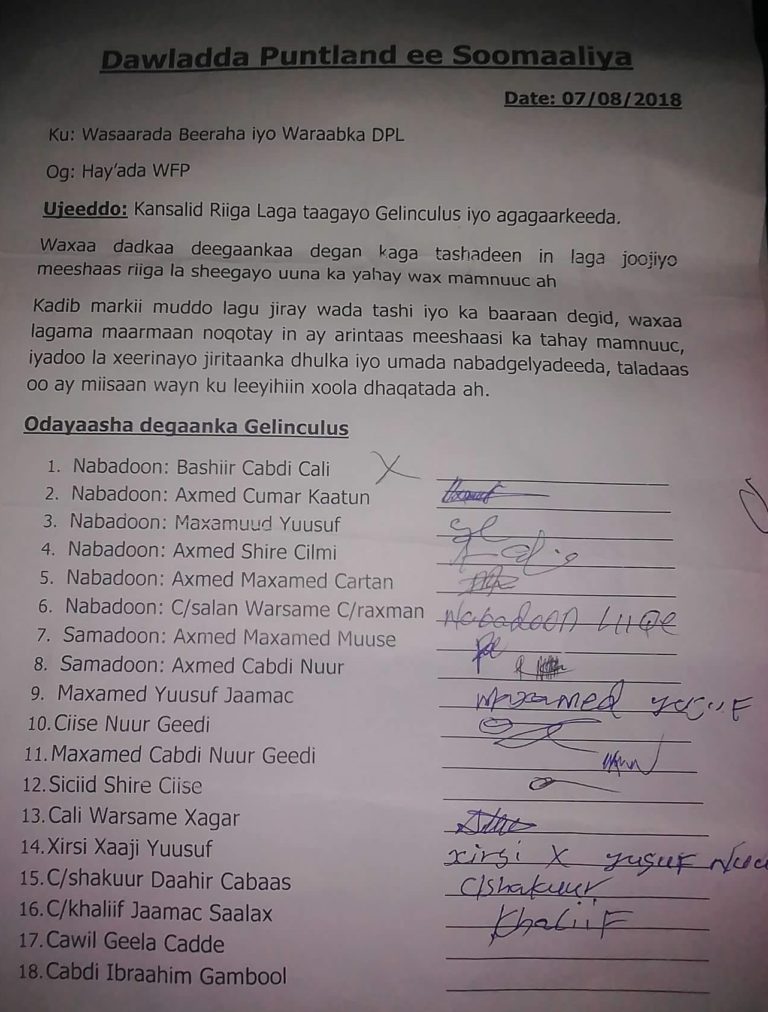 Dawladda Puntland ee Soomaaliya
Date: 07/08/2018
Ku: Wasaarada Beeraha iyo Waraabka DPL
Og: Hay'ada WFP
Ujeeddo: Kansalid Riiga Laga taagayo Gelinculus iyo agagaarkeeda.
Waxaa dadkaa deegaankaa degan kaga tashadeen in laga joojiyo
meeshaas riiga la sheegayo uuna ka yahay wax mamnuuc ah
Kadib markii muddo lagu jiray wada tashi iyo ka baaraan degid, waxaa
lagama maarmaan noqotay in ay arintaas meeshaasi ka tahay mamnuuc,
iyadoo la xeerinayo jiritaanka dhulka iyo umada nabadgelyadeeda, taladaas
oo ay miisaan wayn ku leeyihiin xoola dhaqatada ah.
Odayaasha degaanka Gelinculus
1. Nabadoon: Bashiir Cabdi Cali X
2. Nabadoon: Axmed Cumar Kaatun
3. Nabadoon: Maxamuud Yuusuf
4. Nabadoon: Axmed Shire Cilmi
5. Nabadoon: Axmed Maxamed Cartan
6. Nabadoon: C/salan Warsame C/raxman Nabadoon
7. Samadoon: Axmed Maxamed Muuse
8. Samadoon: Axmed Cabdi Nuur
9. Maxamed Yuusuf Jaamac Maxamed yusuf
10. Ciise Nuur Geedi
11. Maxamed Cabdi Nuur Geedi
12. Siciid Shire Ciise
13. Cali Warsame Xagar
14. Xirsi Xaaji Yuusuf xirsi X yusuf
15. C/shakuur Daahir Cabaas C/shakuur
16. C/khaliif Jaamac Saalax Khaliif
17. Cawil Geela Cadde
18. Cabdi Ibraahim Gambool